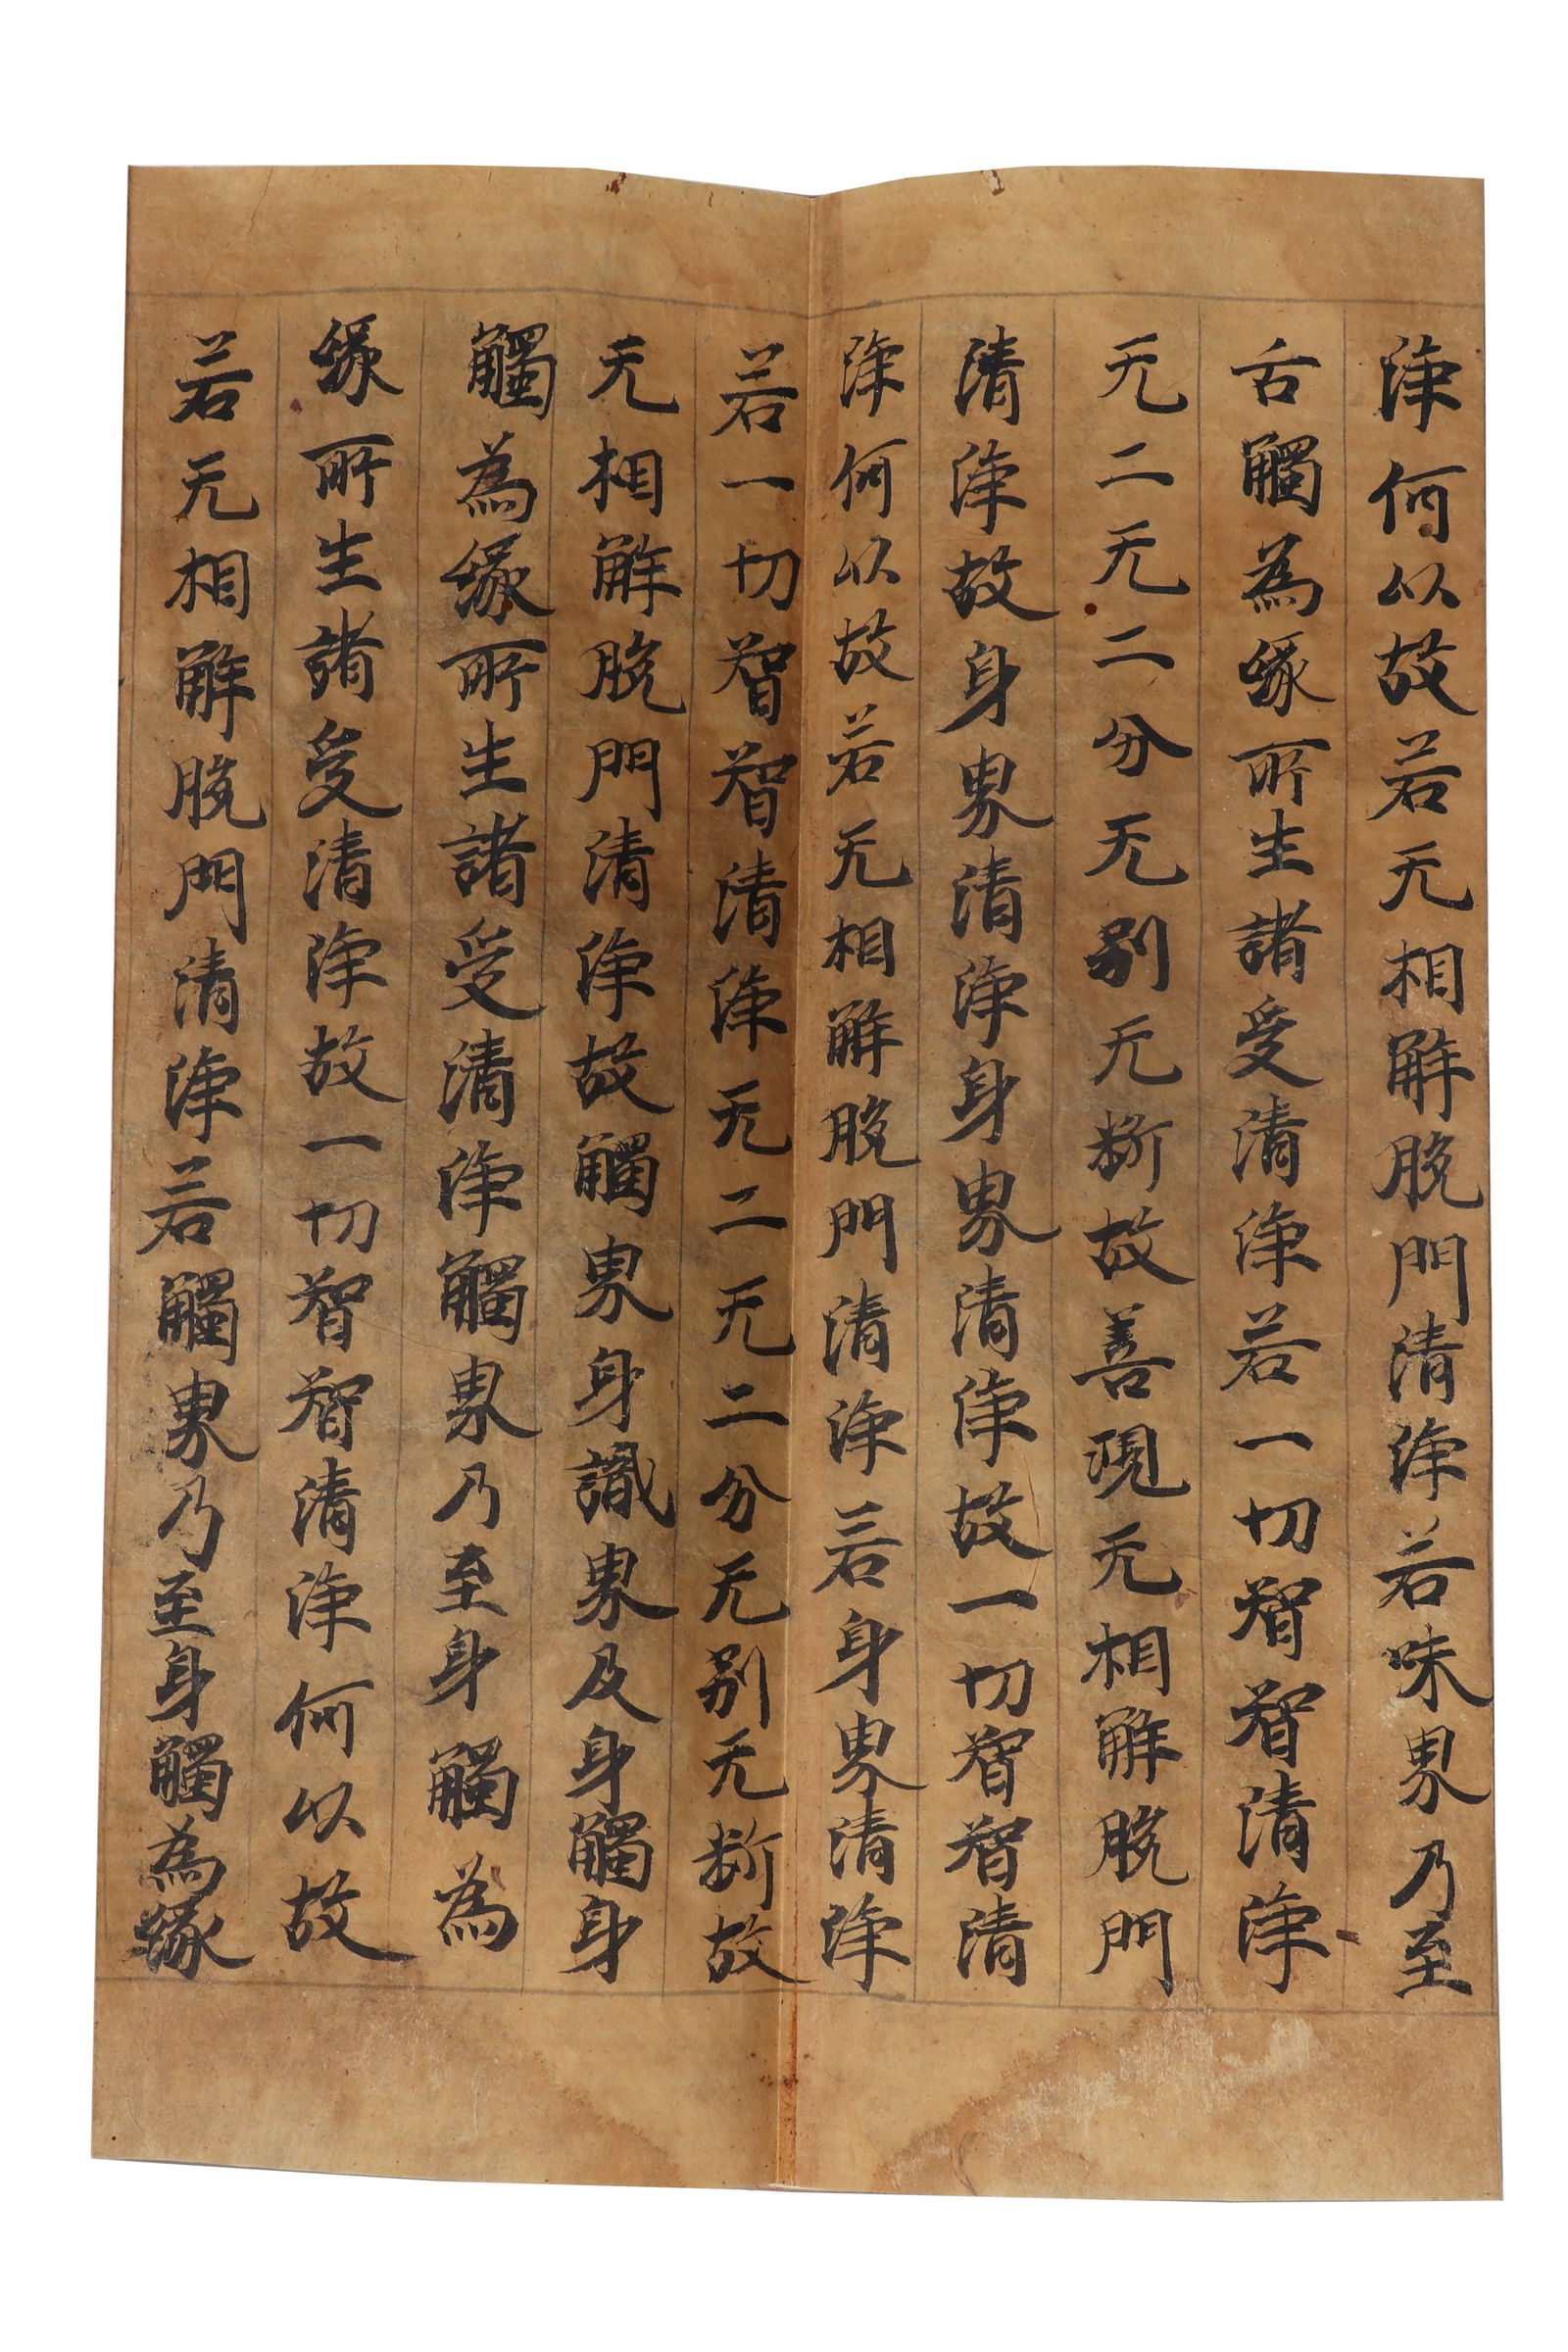 淨何以故若无相解脫門清淨若味界乃至
舌觸為緣所生諸受清淨若一切智智清淨
无二无二分无別无斷故善現无相解脫門
清淨故身界清淨身界清淨故一切智智清
淨何以故若无相解脫門清淨若身界清淨
若一切智智清淨无二无二分无別无斷故
无相解脫門清淨故觸界身識界及身觸身
觸為緣所生諸受清淨觸界乃至身觸為
緣所生諸受清淨故一切智智清淨何以故
若无相解脫門清淨若觸界乃至身觸為緣